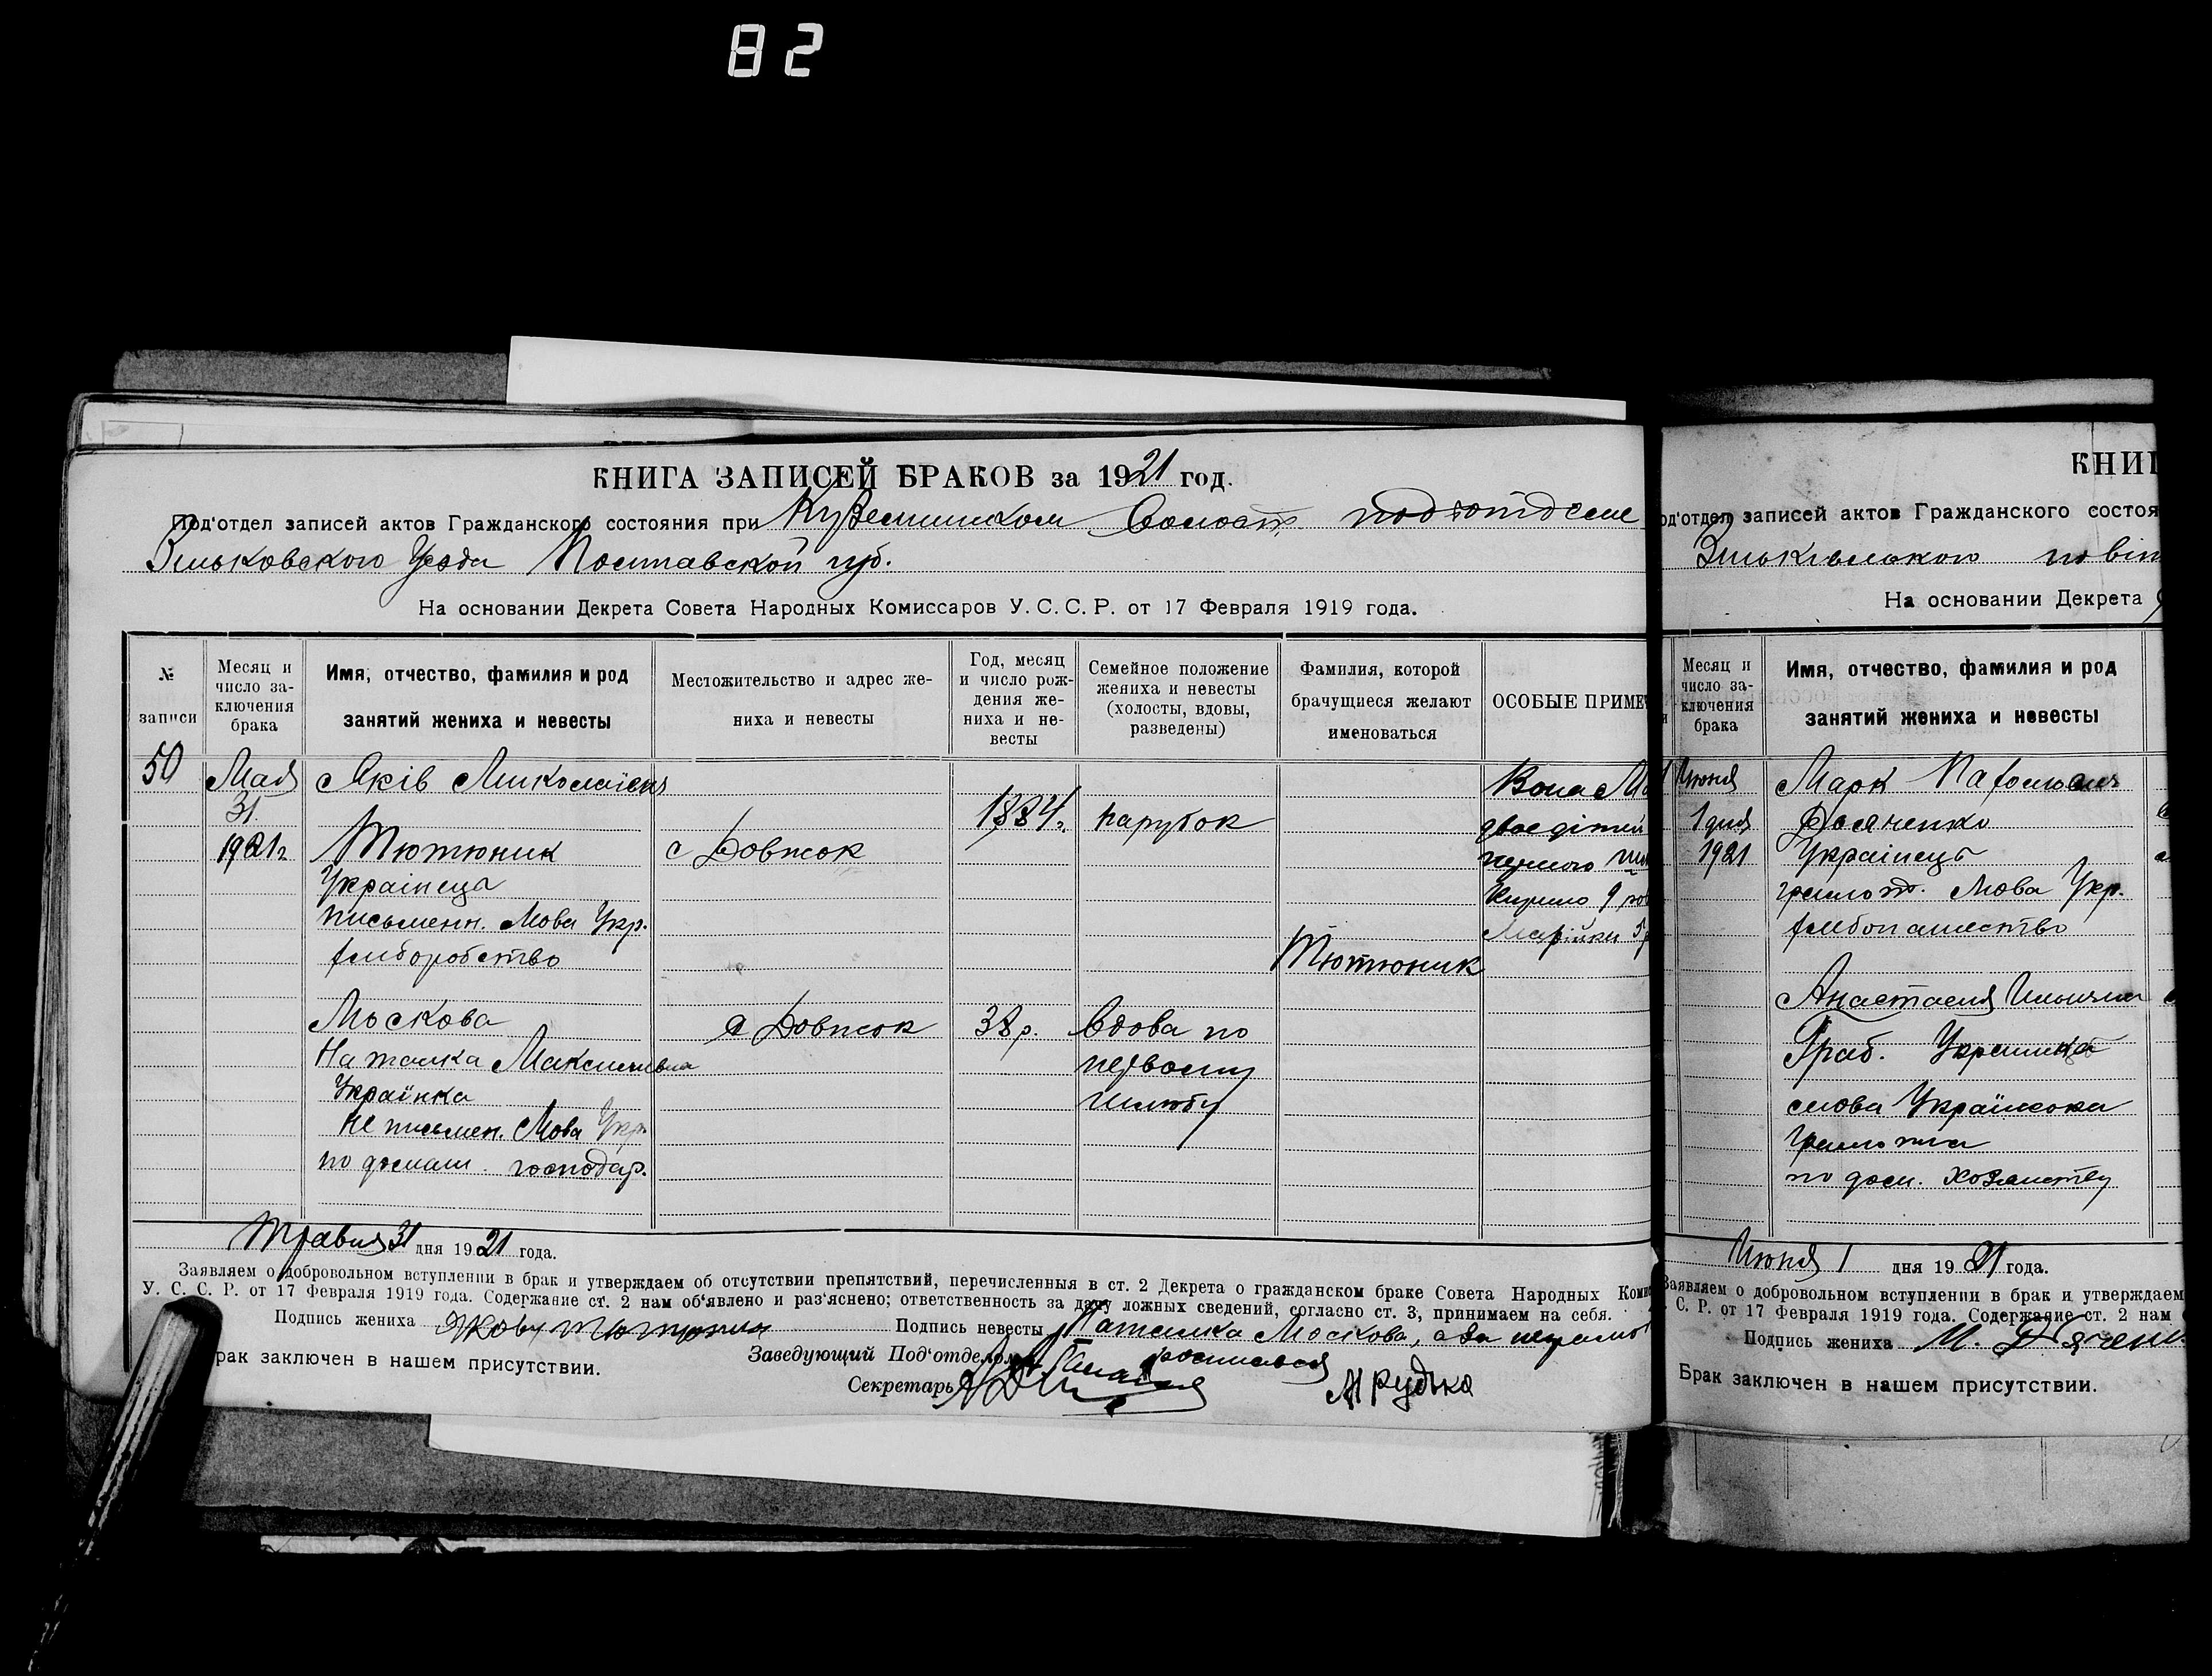 82
КНИГА ЗАПИСЕЙ БРАКОВ за 1921 год.
Под'отдел записей актов Гражданского состояния при
Зиньковского Уезда Полтавской губ.
На основании Декрета Совета Народных Комиссаров У. С. С. Р. от 17 Февраля 1919 года.
№ записи
Месяц и число заключения брака
Имя, отчество, фамилия и род занятий жениха и невесты
Местожительство и адрес жениха и невесты
Год, месяц и число рождения жениха и невесты
Семейное положение жениха и невесты (холосты, вдовы, разведены)
Фамилия, которой брачущиеся желают именоваться
ОСОБЫЕ ПРИМЕЧ
50
Мая
31
1921г.
Яків Миколаїев
Тютюник
Українець
письменн. Мова Укр.
хлиборобство
с Довжок
1884г.
парубок
Вона
двоє дітей
первого
Кирило 9
Марійки 5
Тютюник
Москова
Наталка Максимивна
Українка
не письмен. Мова Укр.
по домаш. господар.
с Довжок
38 р.
вдова по
первому
шлюбу
Травня 31 дня 1921 года.
Заявляем о добровольном вступлении в брак и утверждаем об отсутствии препятствий, перечисленныя в ст. 2 Декрета о гражданском браке Совета Народных Комис
У. С. С. Р. от 17 Февраля 1919 года. Содержание ст. 2 нам об'явлено и раз'яснено; ответственность за дачу ложных сведений, согласно ст. 3, принимаем на себя.
Подпись жениха Яковъ Тютюник Подпись невесты Наталка Москова, а за неграмот
рак заключен в нашем присутствии.
Заведующий Под'отделом росписався
Секретарь
М Рудько
КНИГ
од'отдел записей актов Гражданского состоя
Зиньківського повіт
На основании Декрета
Месяц и число заключения брака
Имя, отчество, фамилия и род занятий жениха и невесты
Июня
1 дня
1921
Марк
Дьяченко
Українець
грамотн. Мова Укр.
хлибопашество
Анастасия
Граб. Украинка
мова Українська
грамотна
по дом. хозяйству
Июня 1 дня 1921 года.
Заявляем о добровольном вступлении в брак и утверждаем
С. Р. от 17 Февраля 1919 года. Содержание ст. 2 нам
Подпись жениха М. Дяченк
Брак заключен в нашем присутствии.